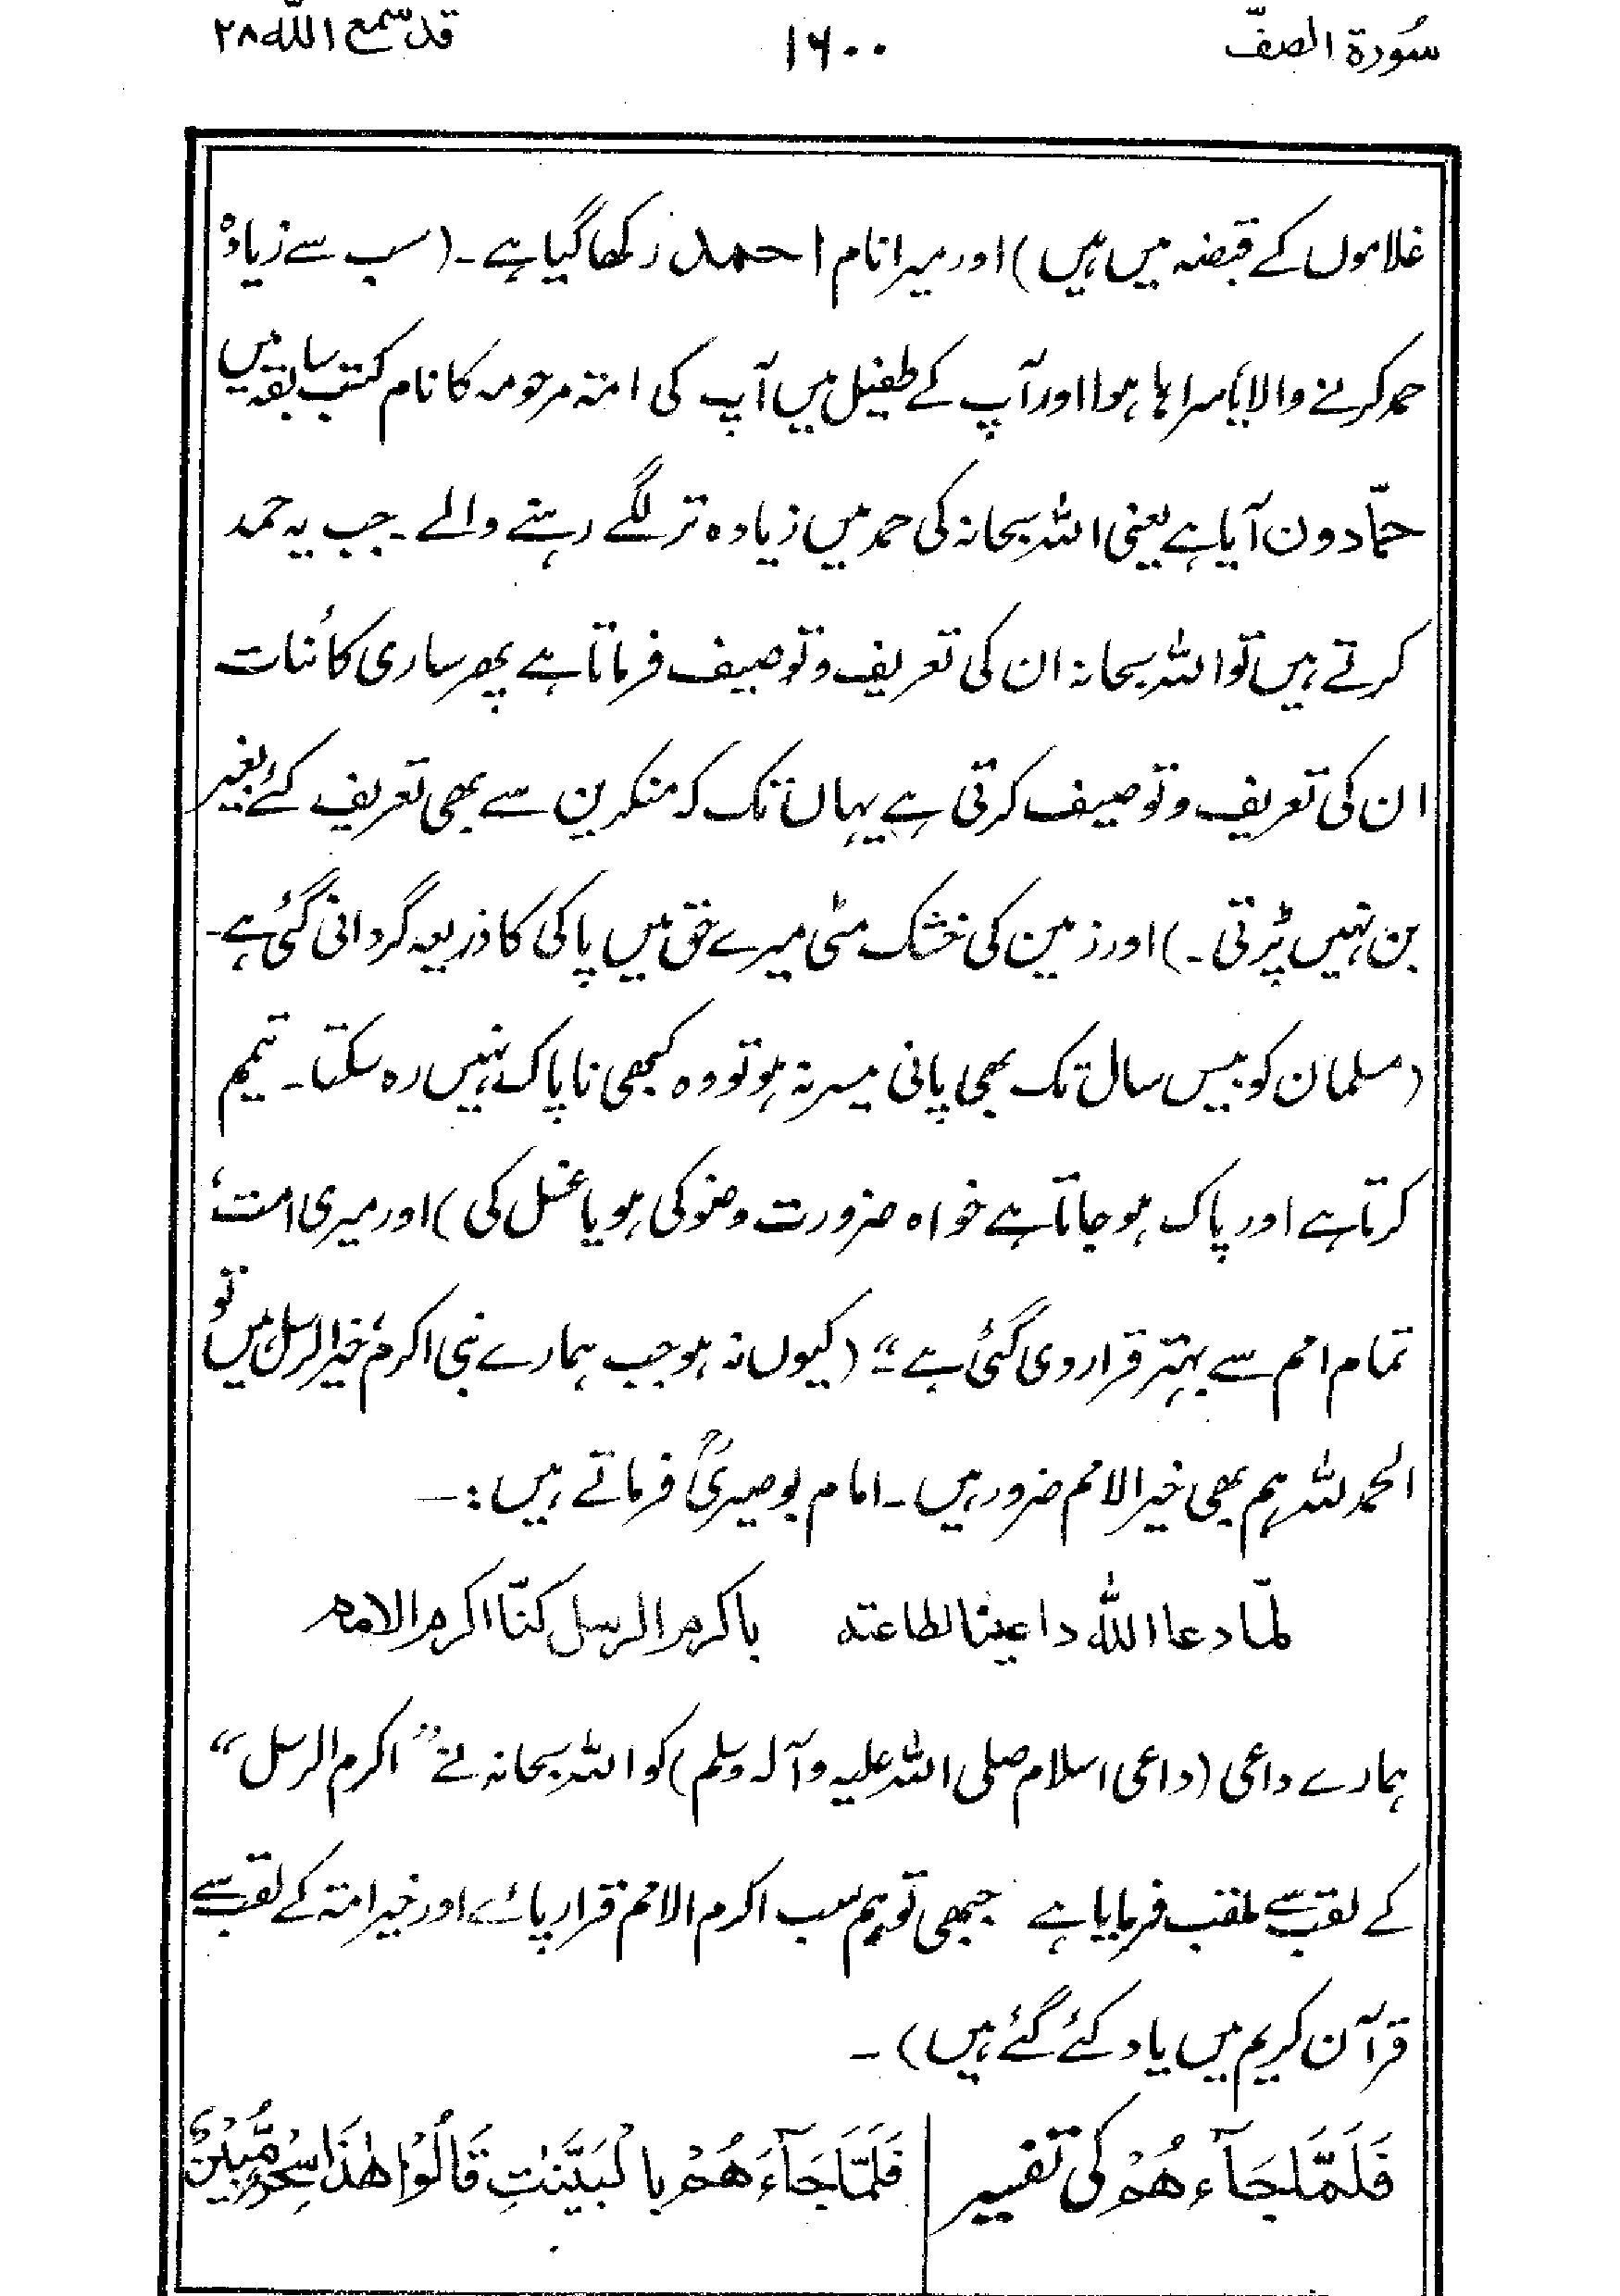 سُورۃ الصفّ ۱۶۰۰ قد سّمع اللّٰه ۲۸
غلاموں کے قبضہ میں ہیں) اور میرا نام احمد رکھا گیا ہے۔ (سب سے زیادہ
حمد کرنے والا یا سراہا ہوا اور آپ کے طفیل میں آپ کی امتہ مرحومہ کا نام کتب سابقہ میں
حمّادون آیا ہے یعنی اللہ سبحانہ کی حمد میں زیادہ تر لگے رہنے والے۔ جب یہ حمد
کرتے ہیں تو اللہ سبحانہ ان کی تعریف و توصیف فرماتا ہے پھر ساری کائنات
ان کی تعریف و توصیف کرتی ہے یہاں تک کہ منکرین سے بھی تعریف کئے بغیر
بن نہیں پڑتی۔) اور زمین کی خشک مٹی میرے حق میں پاکی کا ذریعہ گردانی گئی ہے۔
(مسلمان کو بیس سال تک بھی پانی میسر نہ ہو تو وہ کبھی ناپاک نہیں رہ سکتا۔ تیمم
کرتا ہے اور پاک ہو جاتا ہے خواہ ضرورت وضو کی ہو یا غسل کی) اور میری امت،
تمام امم سے بہتر قرار دی گئی ہے“ (کیوں نہ ہو جب ہمارے نبی اکرمؐ خیر الرسل ہیں تو
الحمد للہ ہم بھی خیر الامم ضرور ہیں۔ امام بوصیریؒ فرماتے ہیں :—
لمّا دعا اللّٰه داعینا لطاعته باکرم الرسل کنّا اکرم الامم
ہمارے داعی (داعی اسلام صلی اللہ علیہ وآلہ وسلم) کو اللہ سبحانہ نے ”اکرم الرسل“
کے لقب سے ملقب فرمایا ہے جبھی تو ہم سب اکرم الامم قرار پائے اور خیر امتہ کے لقب سے
قرآن کریم میں یاد کئے گئے ہیں)۔
فَلَمَّا جَآءَ هُمْ کی تفسیر
فَلَمَّا جَآءَ هُمْ بِالْبَيِّنٰتِ قَالُوْا هٰذَا سِحْرٌ مُّبِيْنٌ